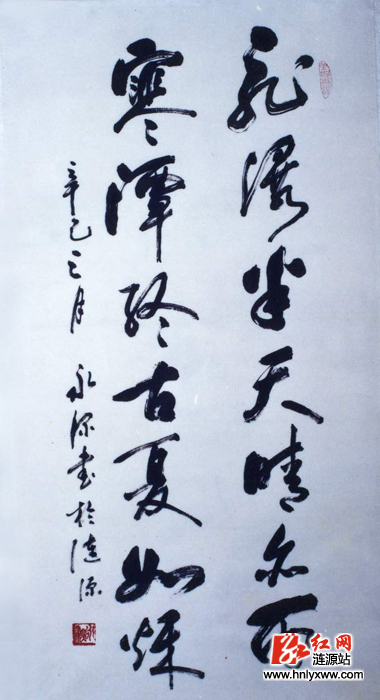 飛瀑半天晴亦雨
寒潭終古夏如秋
辛巳三月 永深書於漣源
红网
涟源站
www.hnlyxww.com